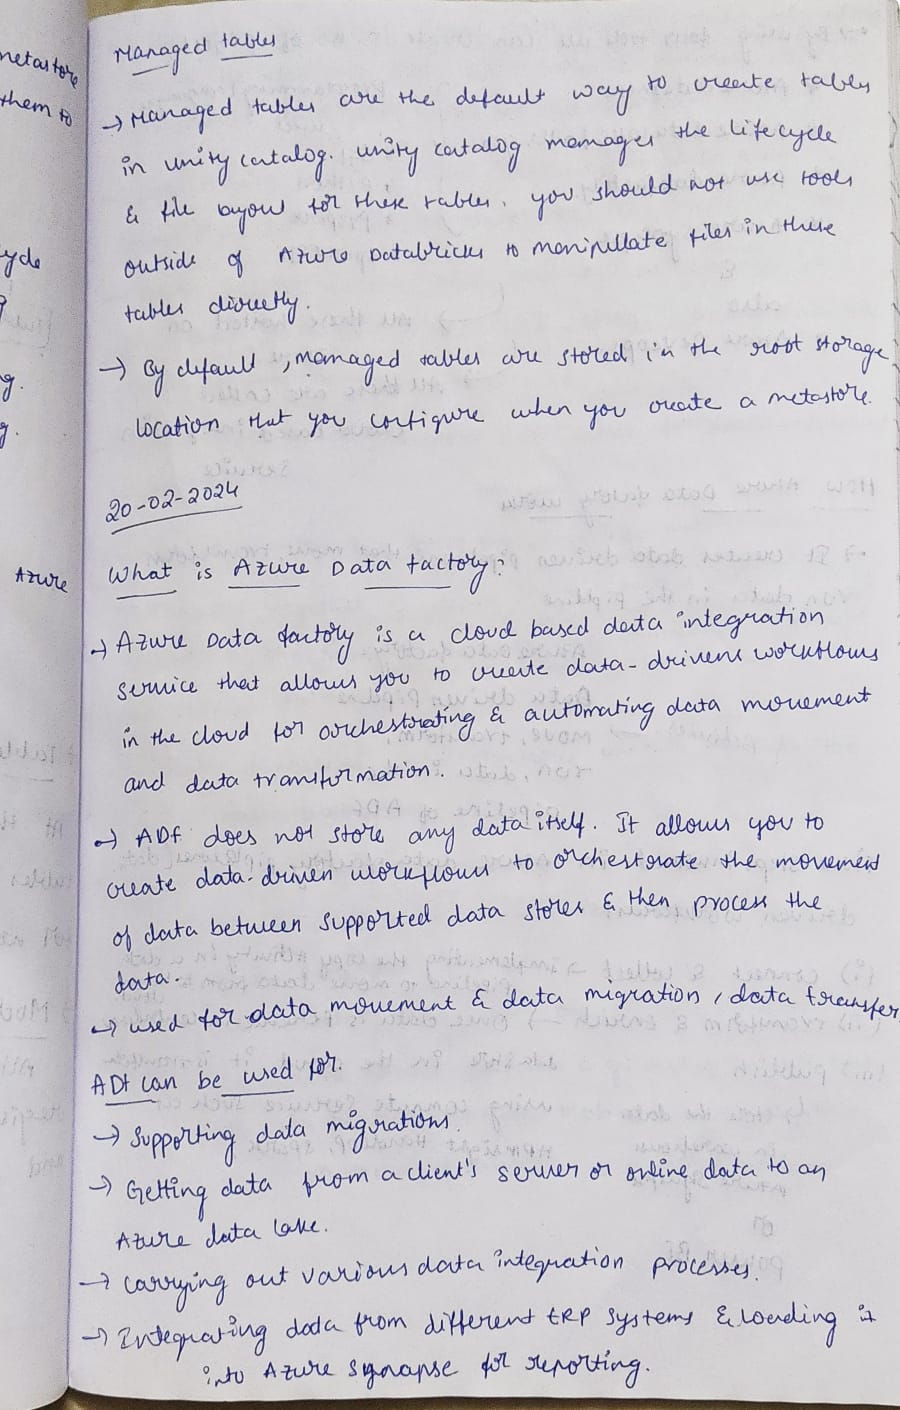 Managed tables
→ Managed tables are the default way to create tables
in unity catalog. unity catalog manages the lifecycle
& file layout for these tables. you should not use tools
outside of Azure Databricks to manipullate files in these
tables directly.
→ By default, managed tables are stored in the root storage
location that you configure when you create a metastore.
20-02-2024
What is Azure Data factory?
→ Azure Data factory is a cloud based data integration
service that allows you to create data-driven workflows
in the cloud for orchestrating & automating data movement
and data transformation.
→ ADF does not store any data itself. It allows you to
create data-driven workflows to orchestrate the movement
of data between supported data stores & then process the
data.
→ used for data movement & data migration, data transfer
ADF can be used for.
→ Supporting data migrations.
→ Getting data from a client's server or online data to an
Azure data lake.
→ Carrying out various data integration processes.
→ Integrating data from different ERP systems & loading it
into Azure Synapse for reporting.
metastore
them to
Azure